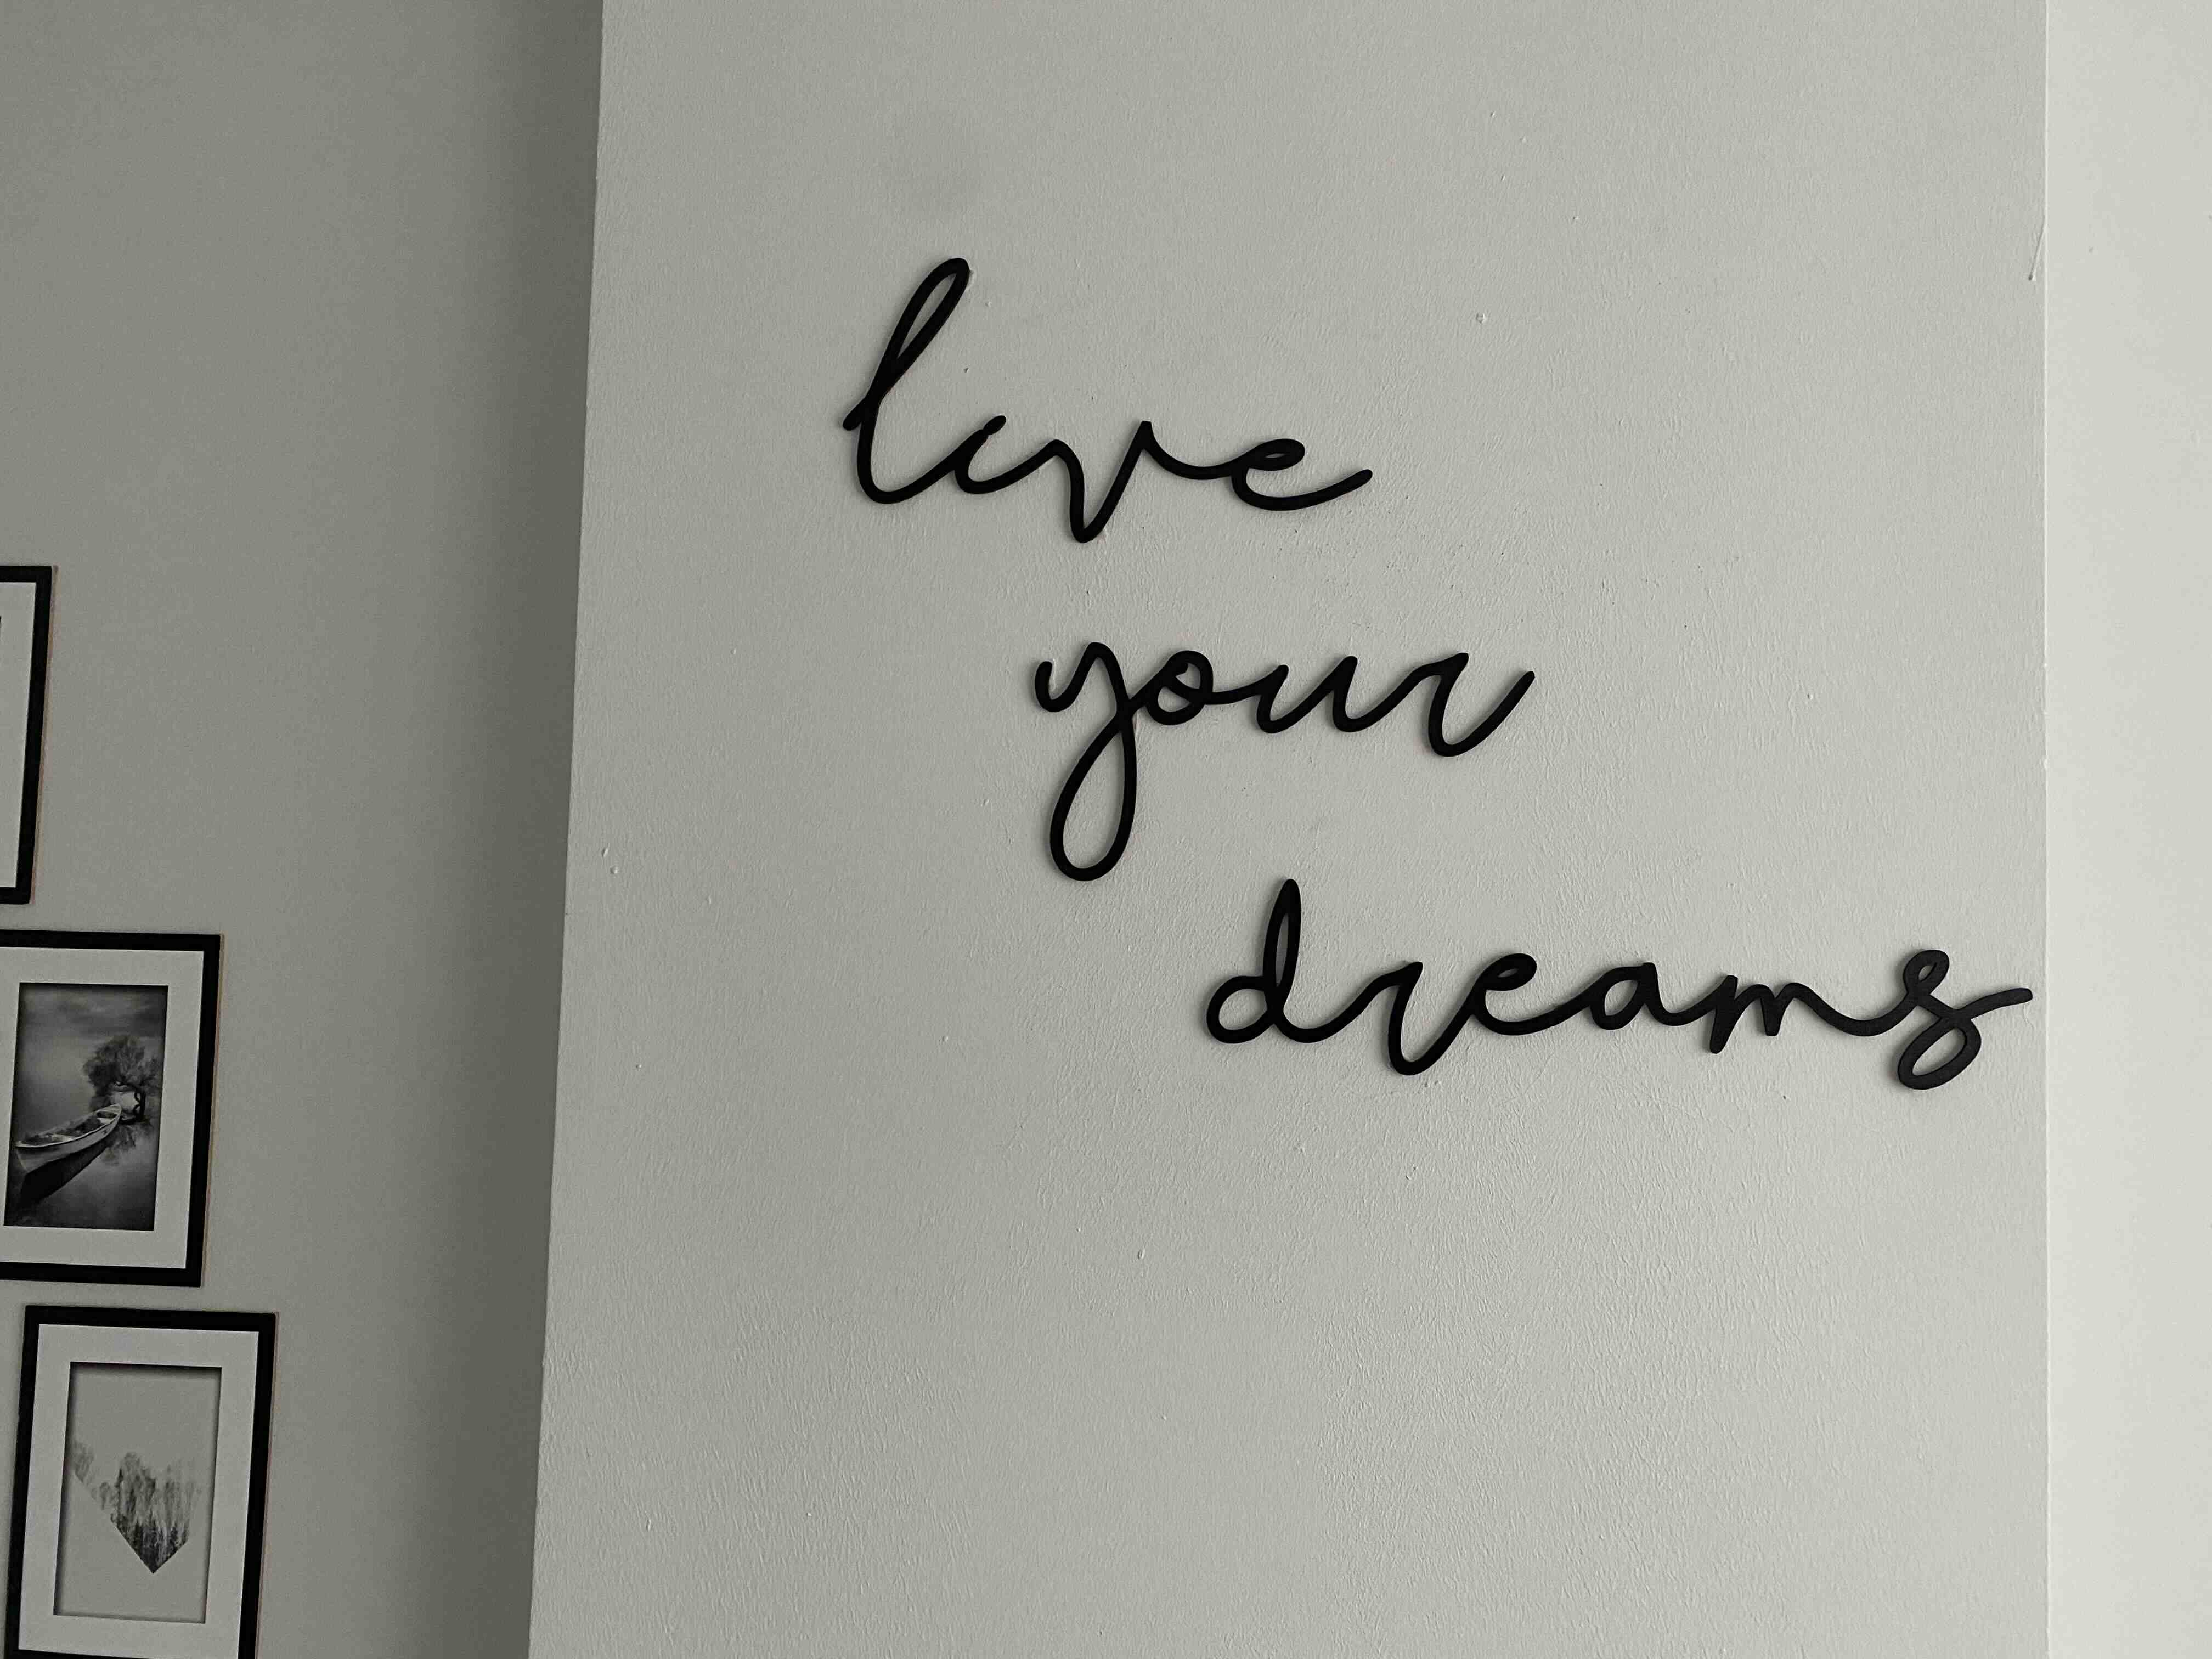 live
your
dreams